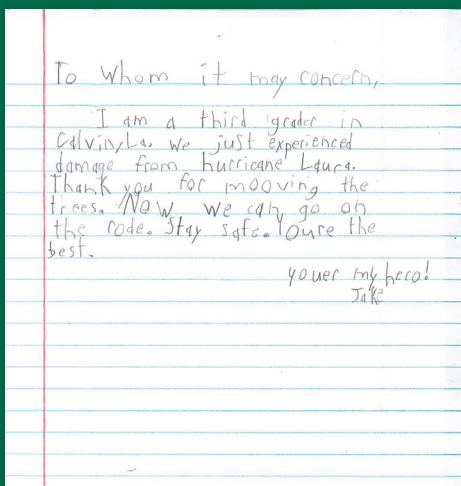 To Whom it may concern,
I am a third grader in
Calvin, La. we just experienced
damage from hurricane Laura.
Thank you for mooving the
trees. Now we can go on
the rode. Stay safe. Youre the
best.
youer my hero!
Jake